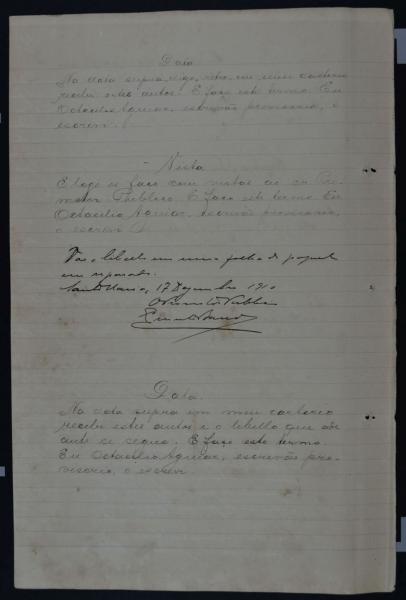 Data
Na data supra digo, retro em meu cartorio
recebi estes autos. E faço este termo. Eu
Octacilio Aguiar, escrivão provisorio, o
escrevi.
Vista
E logo os faço com vistas ao sr. Pro-
motor Publico. E faço este termo. Eu
Octacilio Aguiar, escrivão provisorio,
o escrevi
Vae o libello em uma folha de papel
em separado.
Santa Maria, 17 Dezembro 1910
O Promotor Publico
Data.
Na data supra em meu cartorio
recebi estes autos e o libello que adi-
ante se segue. E faço este termo.
Eu Octacilio Aguiar, escrivão pro-
visorio, o escrevi